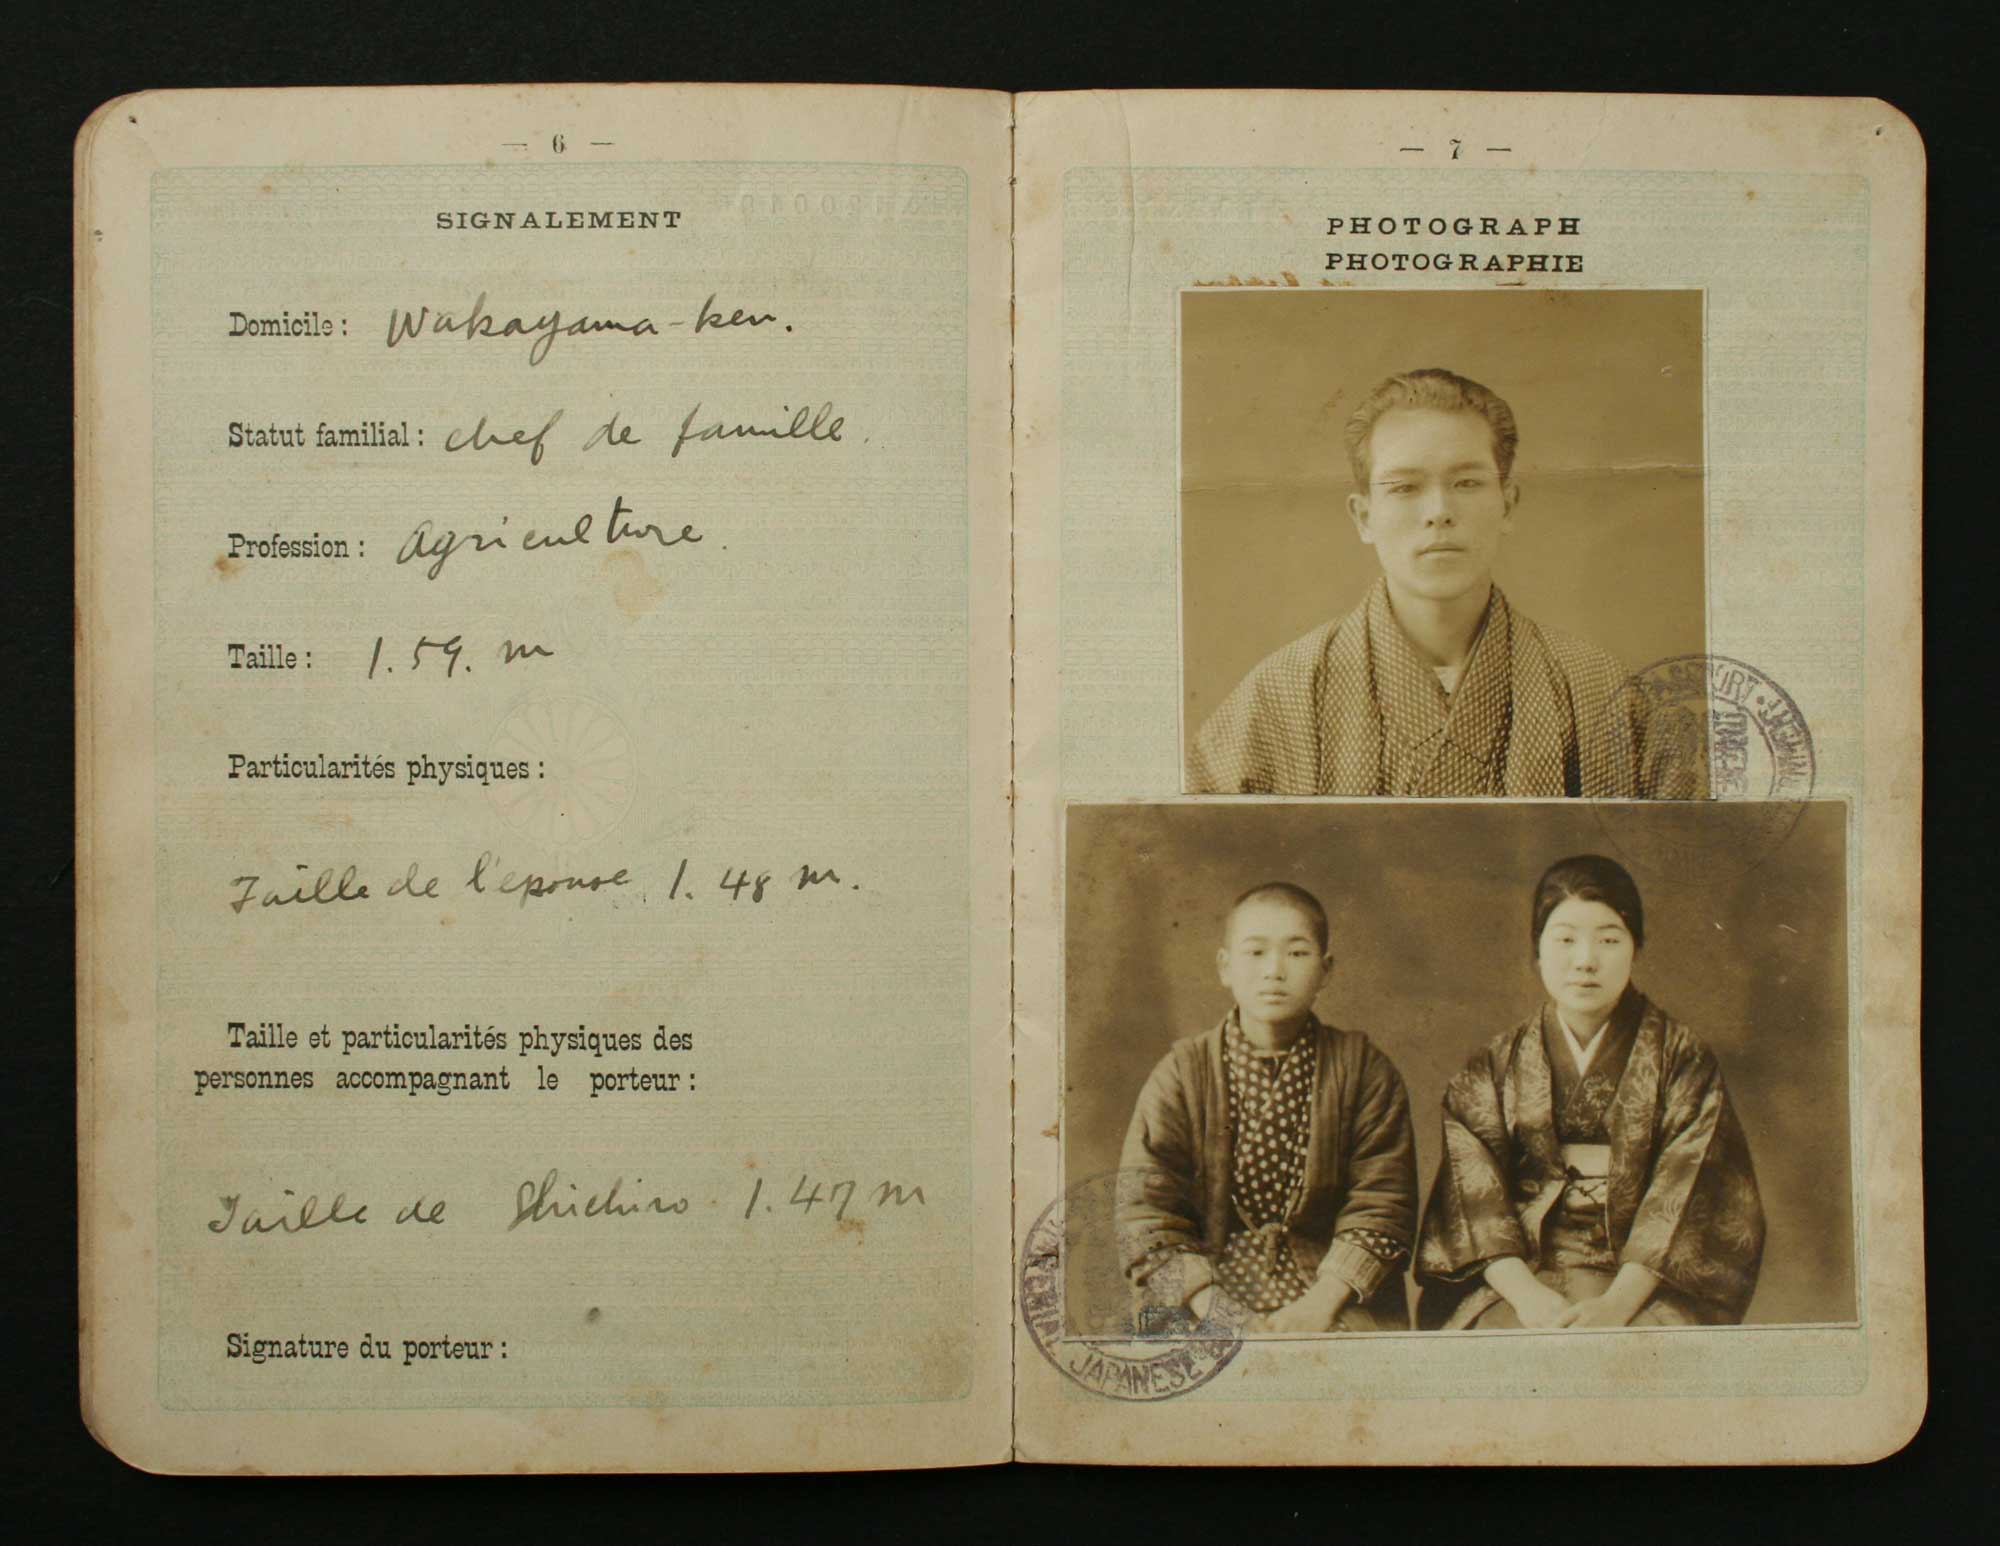 — 6 —
SIGNALEMENT
Domicile : Wakayama-ken.
Statut familial : chef de famille.
Profession : Agriculture.
Taille : 1.59. m
Particularités physiques :
Taille de l'epouse 1.48 m.
Taille et particularités physiques des
personnes accompagnant le porteur :
Taille de Shichiro 1.47 m
Signature du porteur :
— 7 —
PHOTOGRAPH
PHOTOGRAPHIE
JAPANESE